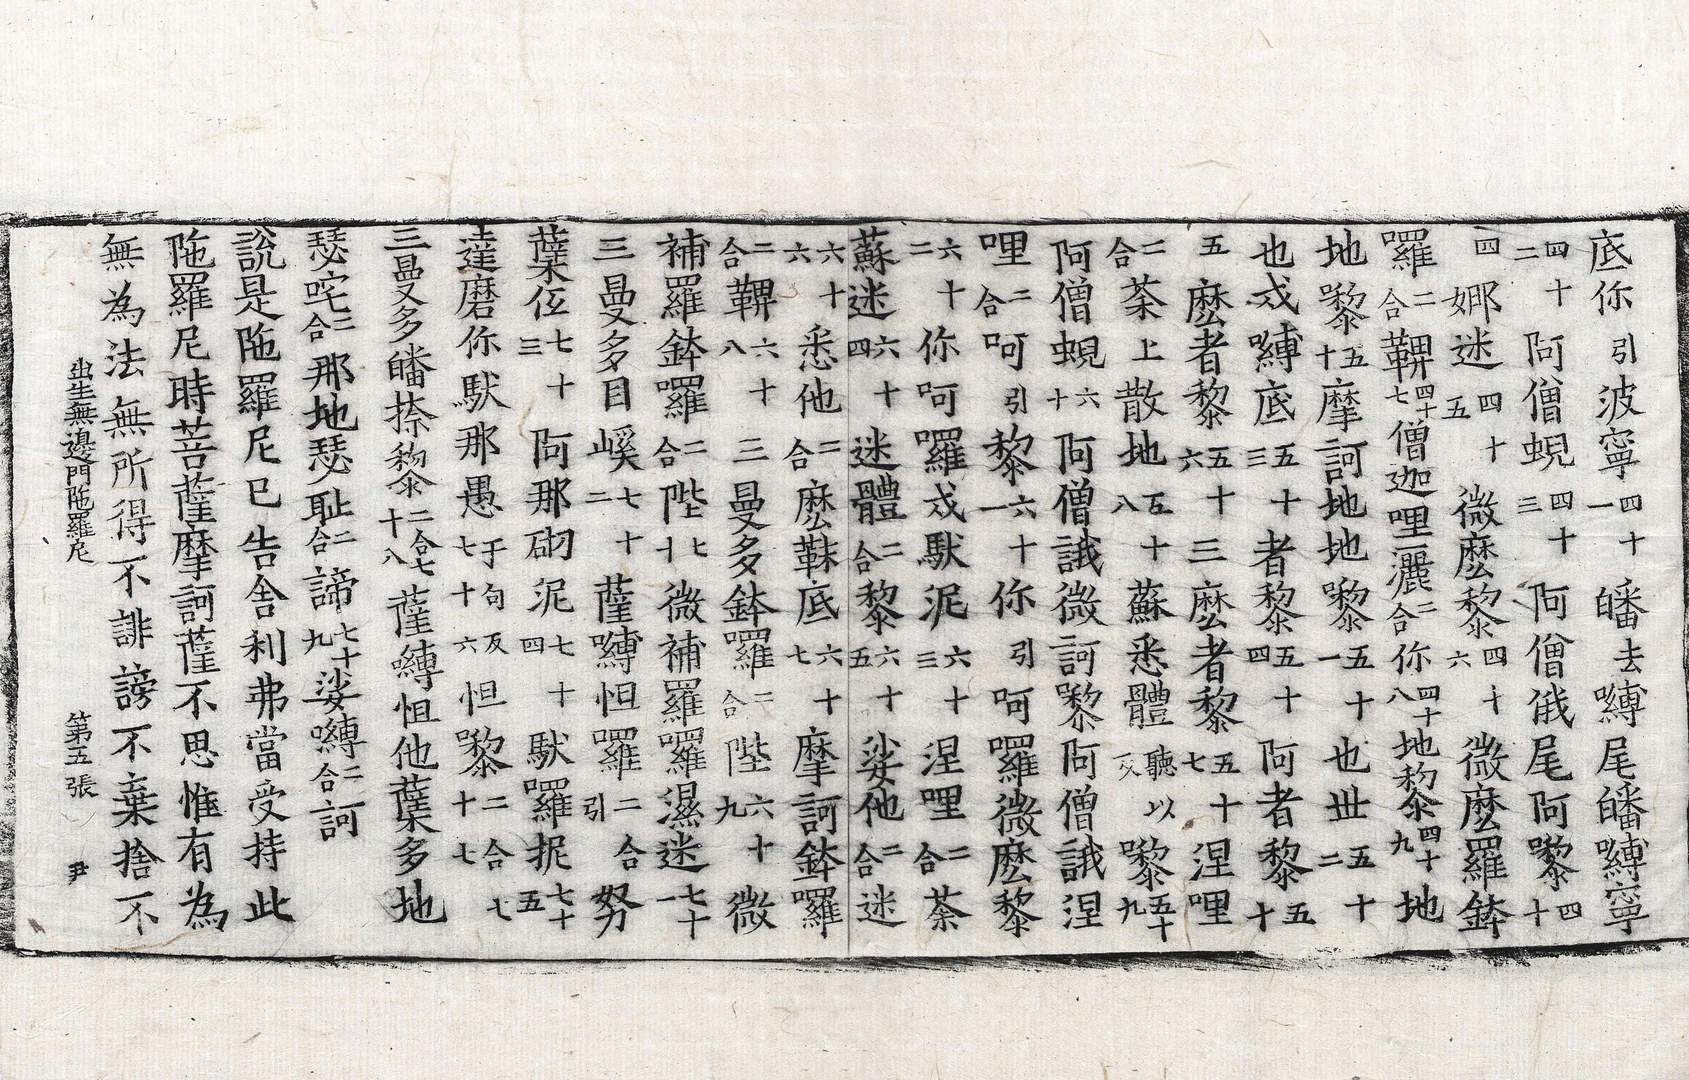 底你引波寧四十一皤去嚩尾皤嚩寧
四十二阿僧蜺四十三阿僧俄尾阿嚟四十
四娜迷四十五微麽黎四十六微麽羅鉢
囉二合鞞四十七僧迦哩灑二合你四十八地㗚四十九地
地㗚五十摩訶地地㗚五十一也丗五十二
也戍嚩底五十三者黎五十四阿者黎五十
五麽者黎五十六三麽者黎五十七涅哩
二合荼上散地五十八蘇悉體聽以反㗚五十九
阿僧蜺六十阿僧誐微訶㗚阿僧誐涅
哩二合呵引黎六十一你引呵囉微麽黎
六十二你呵囉戍馱泥六十三涅哩二合荼
蘇迷六十四迷體二合黎六十五娑他二合迷
六十六悉他二合麽靺底六十七摩訶鉢囉
二合鞞六十八三曼多鉢囉二合陛六十九微
補羅鉢囉二合陛七十微補羅囉濕迷七十一
三曼多目㘁七十二薩嚩怛囉二合引努
蘖伭七十三阿那砌泥七十四馱囉抳七十五
達磨你馱那愚于句反七十六怛㗚二合七十七
三曼多皤捺㗚二合七十八薩嚩怛他蘖多地
瑟咤二合那地瑟恥二合諦七十九娑嚩二合訶
說是陁羅尼已告舍利弗當受持此
陁羅尼時菩薩摩訶薩不思惟有為
無為法無所得不誹謗不棄捨不
出生無邊門陁羅尼 第五張 尹